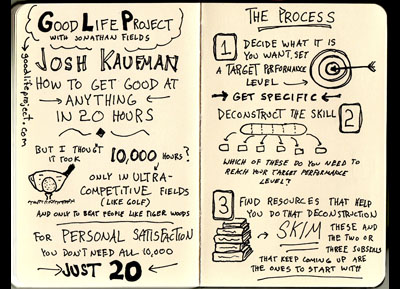 GOOD LIFE PROJECT
WITH JONATHAN FIELDS
goodlifeproject.com
JOSH KAUFMAN
HOW TO GET GOOD AT
ANYTHING
IN 20 HOURS
BUT I THOUGHT
IT TOOK 10,000 HOURS?
ONLY IN ULTRA-
COMPETITIVE FIELDS
(LIKE GOLF)
AND ONLY TO BEAT PEOPLE LIKE TIGER WOODS
FOR PERSONAL SATISFACTION
YOU DON'T NEED ALL 10,000
JUST 20
THE PROCESS
1 DECIDE WHAT IT IS
YOU WANT, SET
A TARGET PERFORMANCE
LEVEL
GET SPECIFIC
DECONSTRUCT THE SKILL 2
WHICH OF THESE DO YOU NEED TO
REACH YOUR TARGET PERFORMANCE
LEVEL?
3 FIND RESOURCES THAT HELP
YOU DO THAT DECONSTRUCTION
SKIM THESE AND
THE TWO OR
THREE SUBSKILLS
THAT KEEP COMING UP ARE
THE ONES TO START WITH